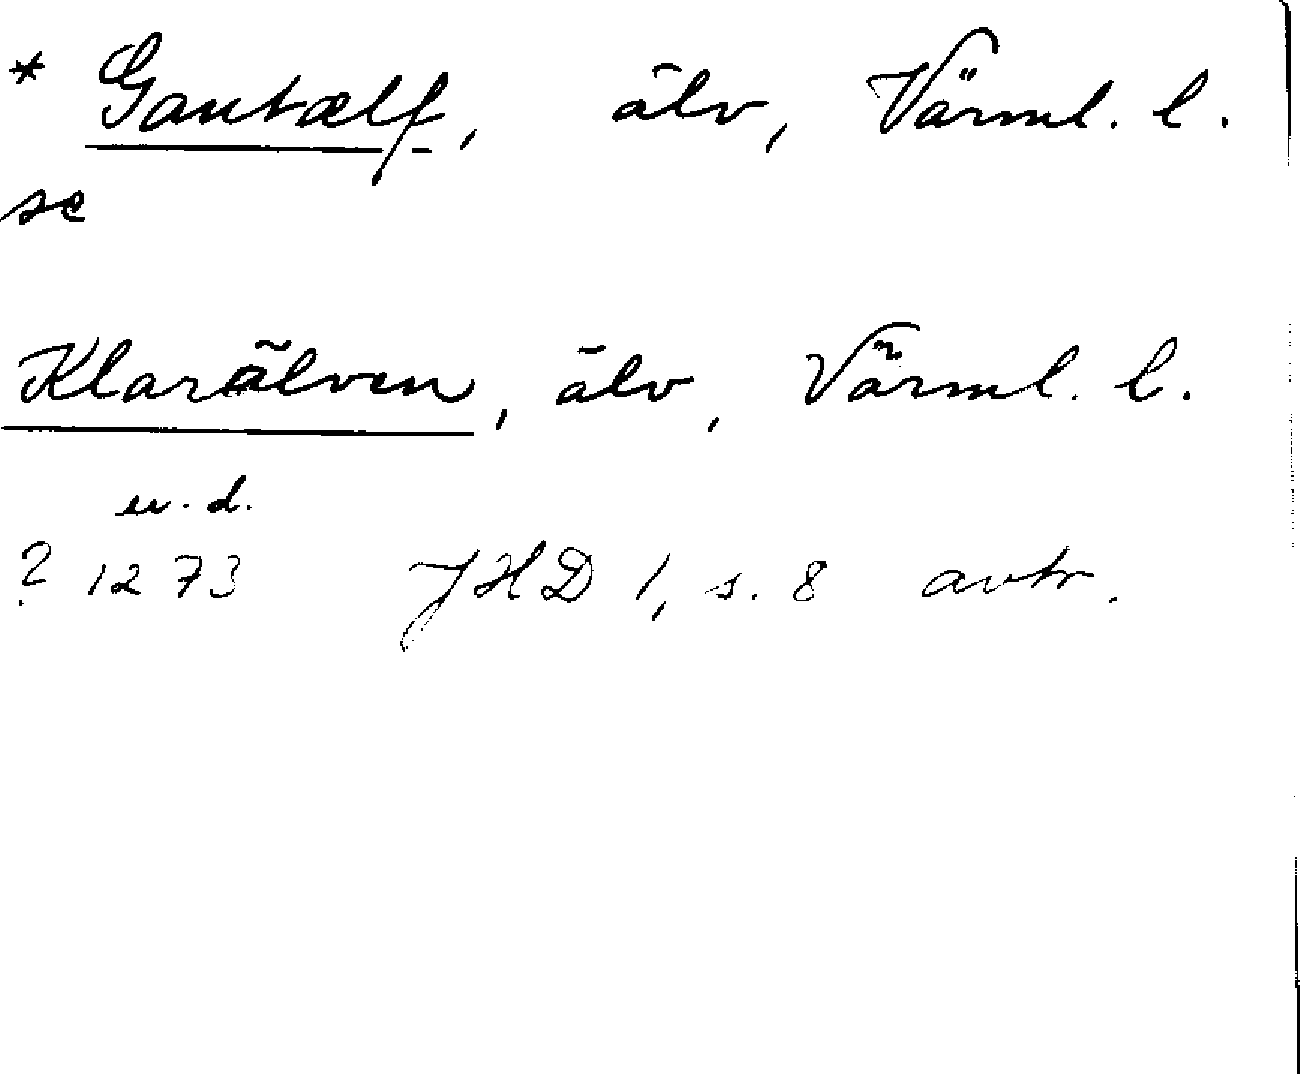 * Gautælf, älv, Värml. l.
se
Klarälven, älv, Värml. l.
u. d.
? 1273 JHD 1, s. 8 avtr.